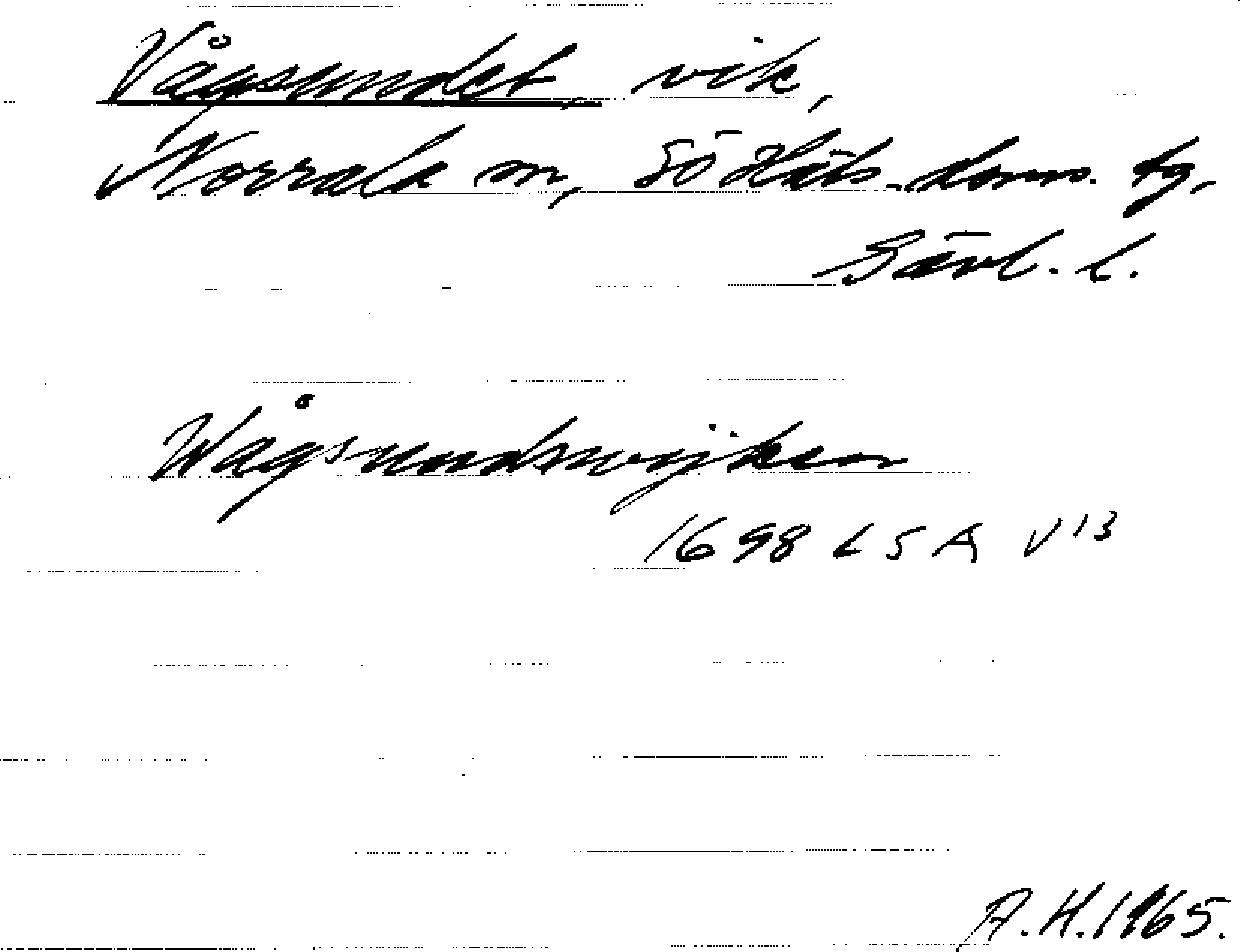 Vågsundet, vik,
Norrala sn, Sö Häls. doms. tg,
Gävl. l.
Wågsundswijken
1698 LSA V 13
A.H. 1965.